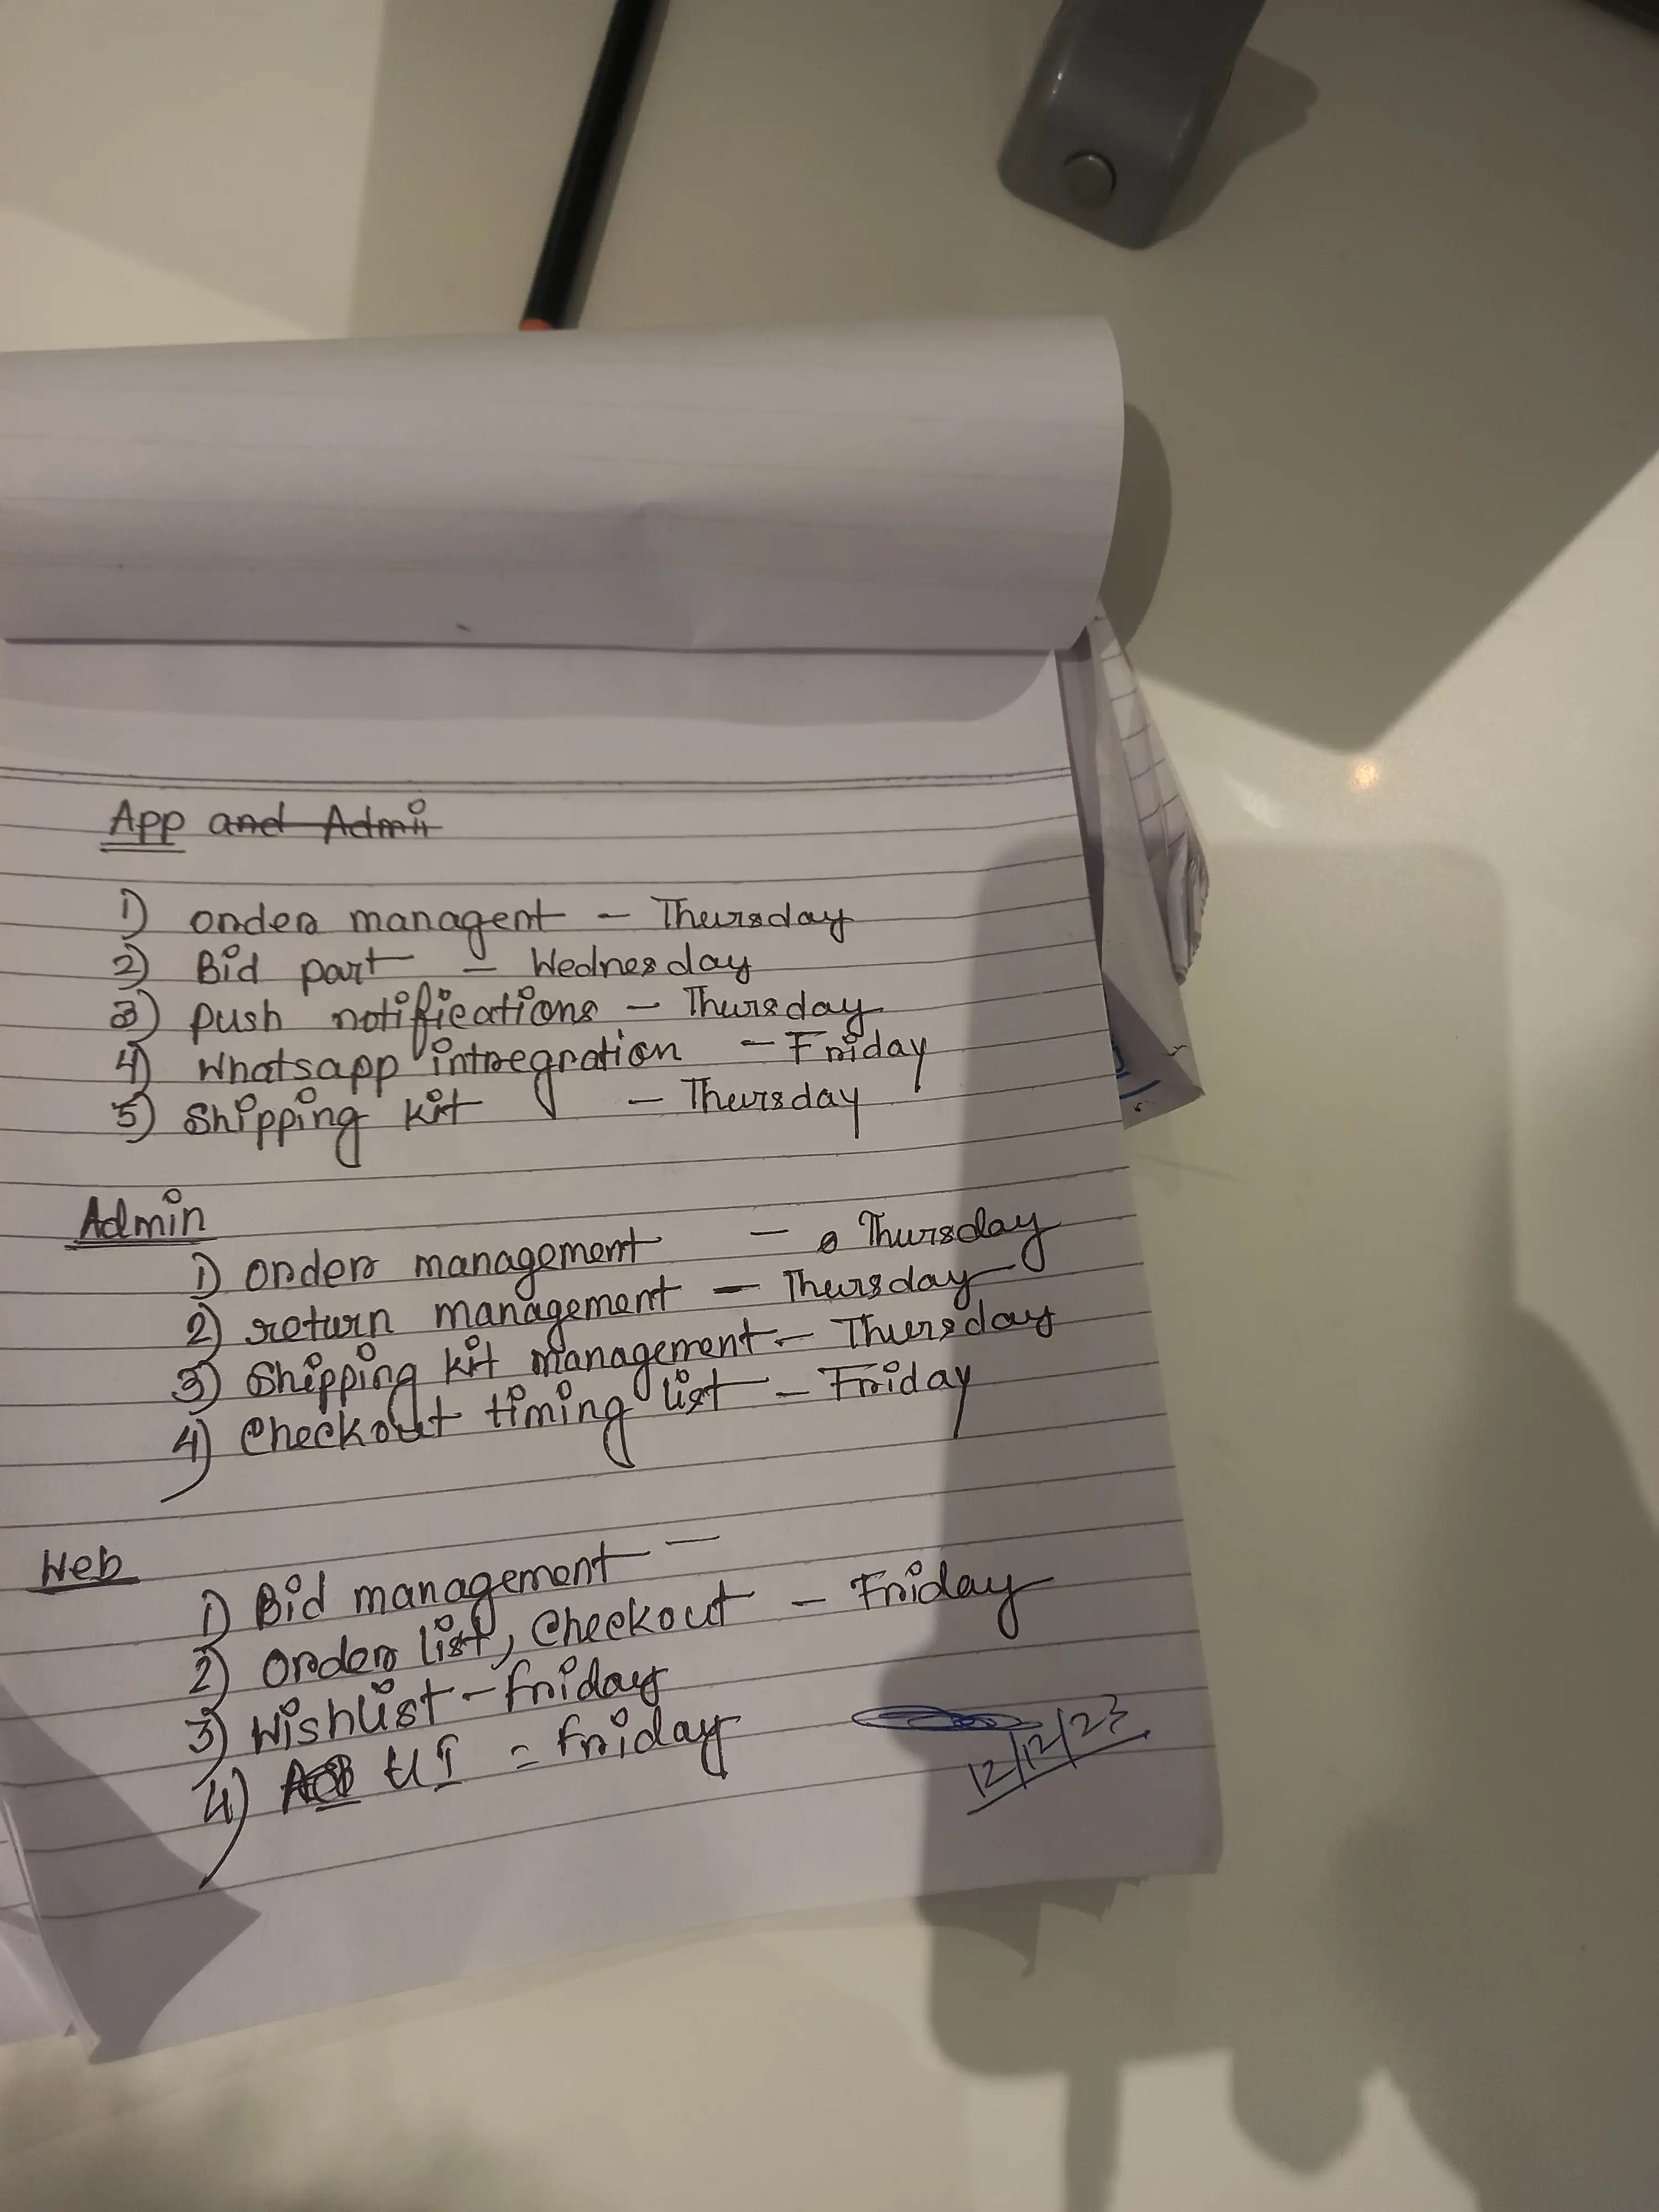 App and Admin
1) order managent - Thursday
2) Bid part - Wednesday
3) push notifications - Thursday
4) Whatsapp intregration - Friday
5) Shipping kit - Thursday
Admin
1) order management - Thursday
2) return management - Thursday
3) Shipping kit management - Thursday
4) Checkout timing list - Friday
Web
1) Bid management -
2) Order list, Checkout - Friday
3) Wishlist - Friday
4) UI = Friday
12/12/23